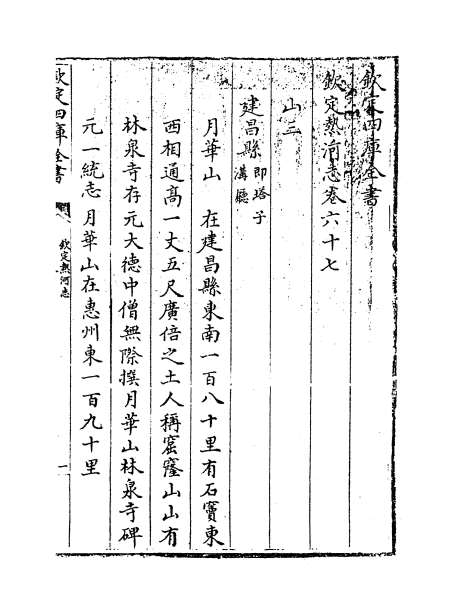 欽定四庫全書
欽定熱河志卷六十七
山三
建昌縣即塔子溝廳
月華山　在建昌縣東南一百八十里有石竇東
西相通高一丈五尺廣倍之土人稱窟窿山山有
林泉寺存元大德中僧無際撰月華山林泉寺碑
元一統志月華山在惠州東一百九十里
欽定四庫全書
欽定熱河志
一